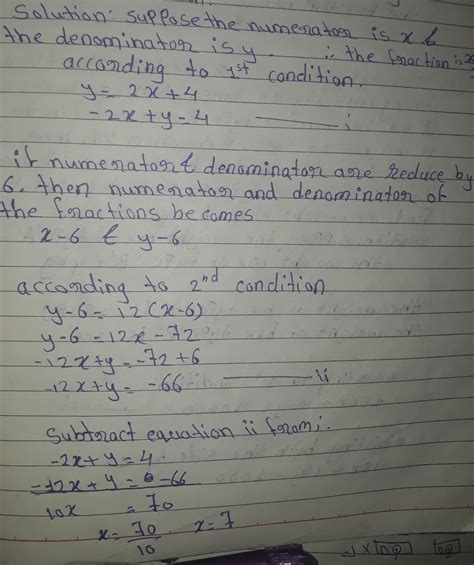 Solution: suppose the numerator is x &
the denominator is y ∴ the fraction is
according to 1st condition.
y = 2x + 4
-2x + y = 4 ——— i
if numerator & denominator are reduce by
6. then numerator and denominator of
the fractions becomes
x-6 & y-6
according to 2nd condition
y-6 = 12(x-6)
y-6 = 12x - 72
-12x + y = -72 + 6
-12x + y = -66 ——— ii
Subtract equation ii from i
-2x + y = 4
-12x + y = -66
10x = 70
x = 70/10 x = 7